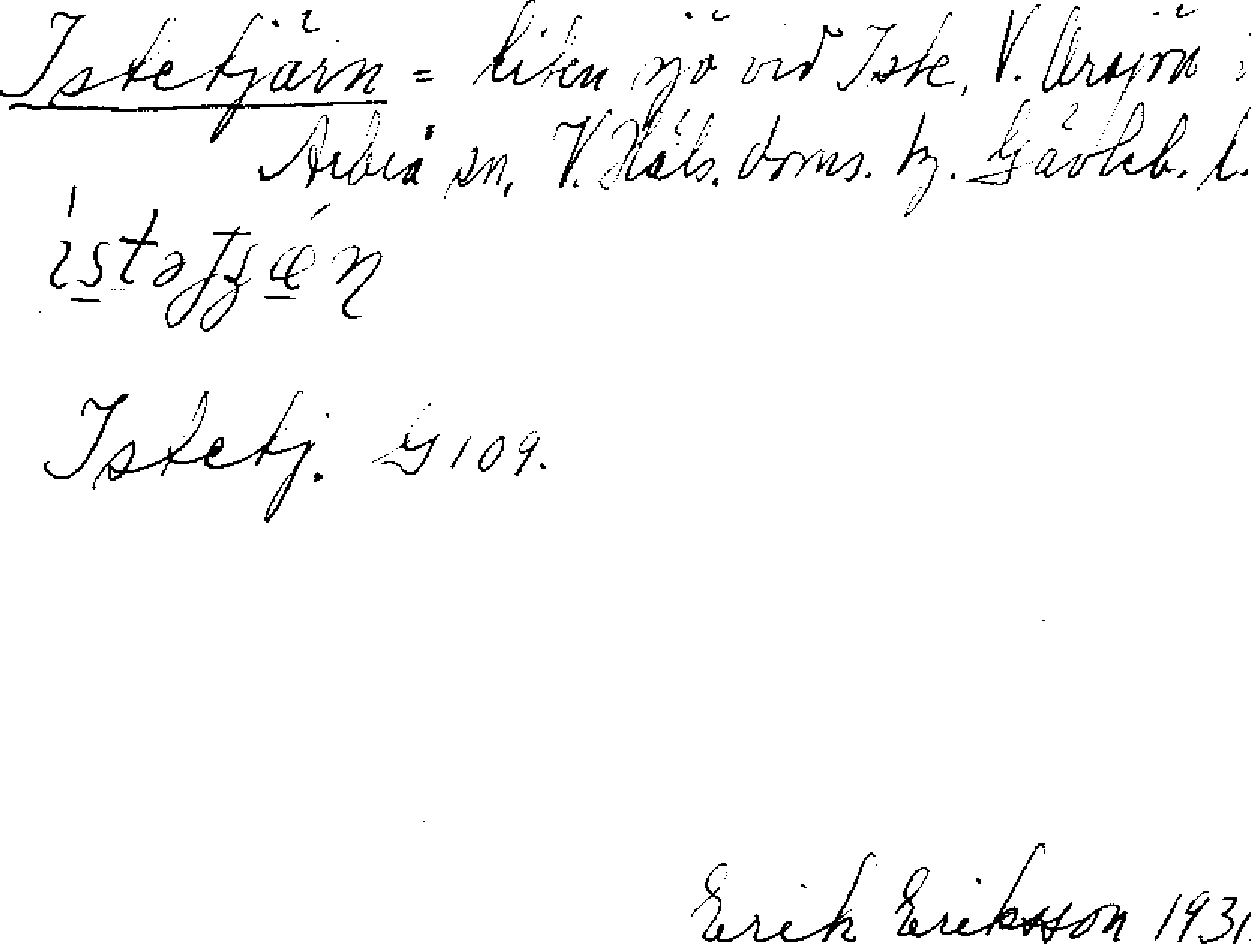 Istetjärn = liten sjö vid Iste, V. Ursjön i
Arbrå sn, V. Häls. doms. tg. Gävleb. l.
Istetj. G 109.
Erik Eriksson 1931